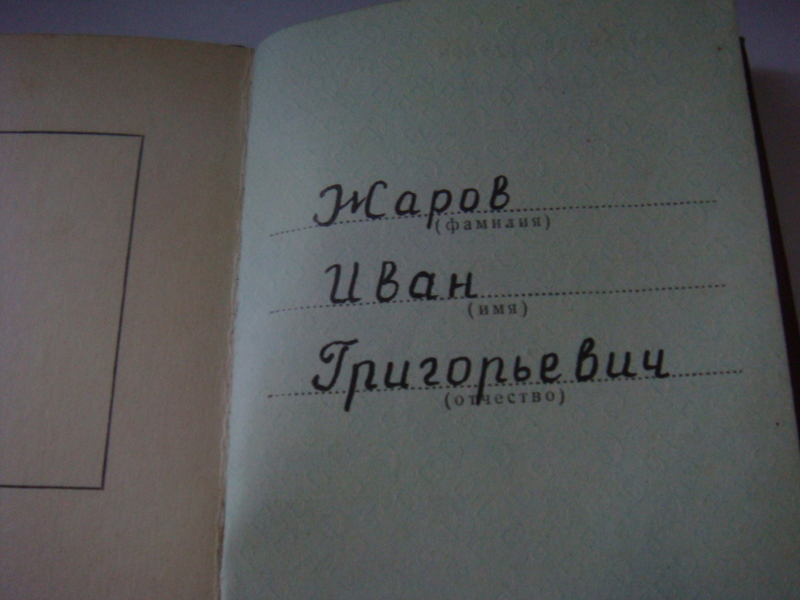 Жаров
(фамилия)
Иван
(имя)
Григорьевич
(отчество)